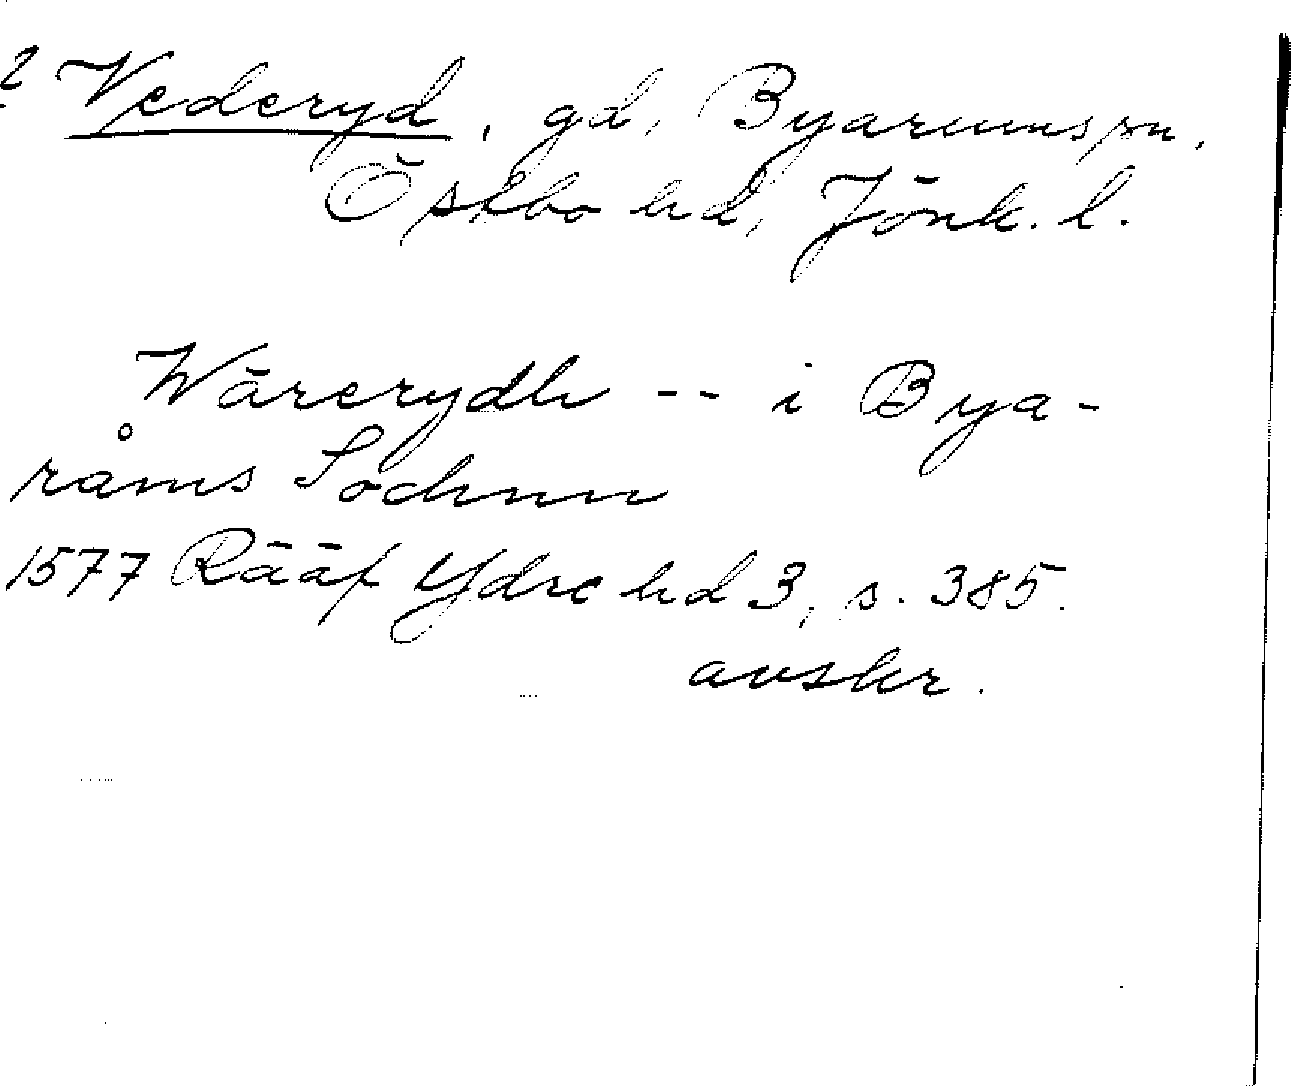 ? Vederyd, gd, Byarums sn,
Östbo hd, Jönk. l.
Wärerydh -- i Bya-
råms Sochnn
1577 Rääf Ydre hd 3, s. 385.
avskr.